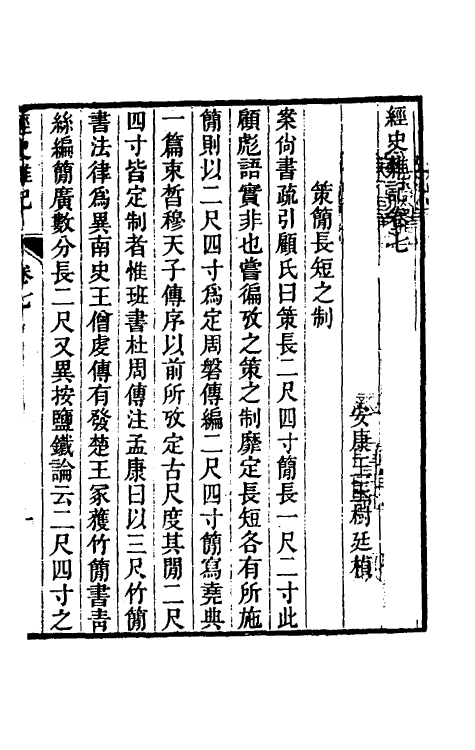 經史雜記卷七
安康王玉樹廷楨
策簡長短之制
案尙書疏引顧氏曰策長二尺四寸簡長一尺二寸此
顧彪語實非也嘗徧攷之策之制靡定長短各有所施
簡則以二尺四寸爲定周磐傳編二尺四寸簡寫堯典
一篇束晳穆天子傳序以前所攷定古尺度其閒二尺
四寸皆定制者惟班書杜周傳注孟康曰以三尺竹簡
書法律爲異南史王僧虔傳有發楚王冢獲竹簡書靑
絲編簡廣數分長二尺又異按鹽鐵論云二尺四寸之
經史雜記
卷七
一